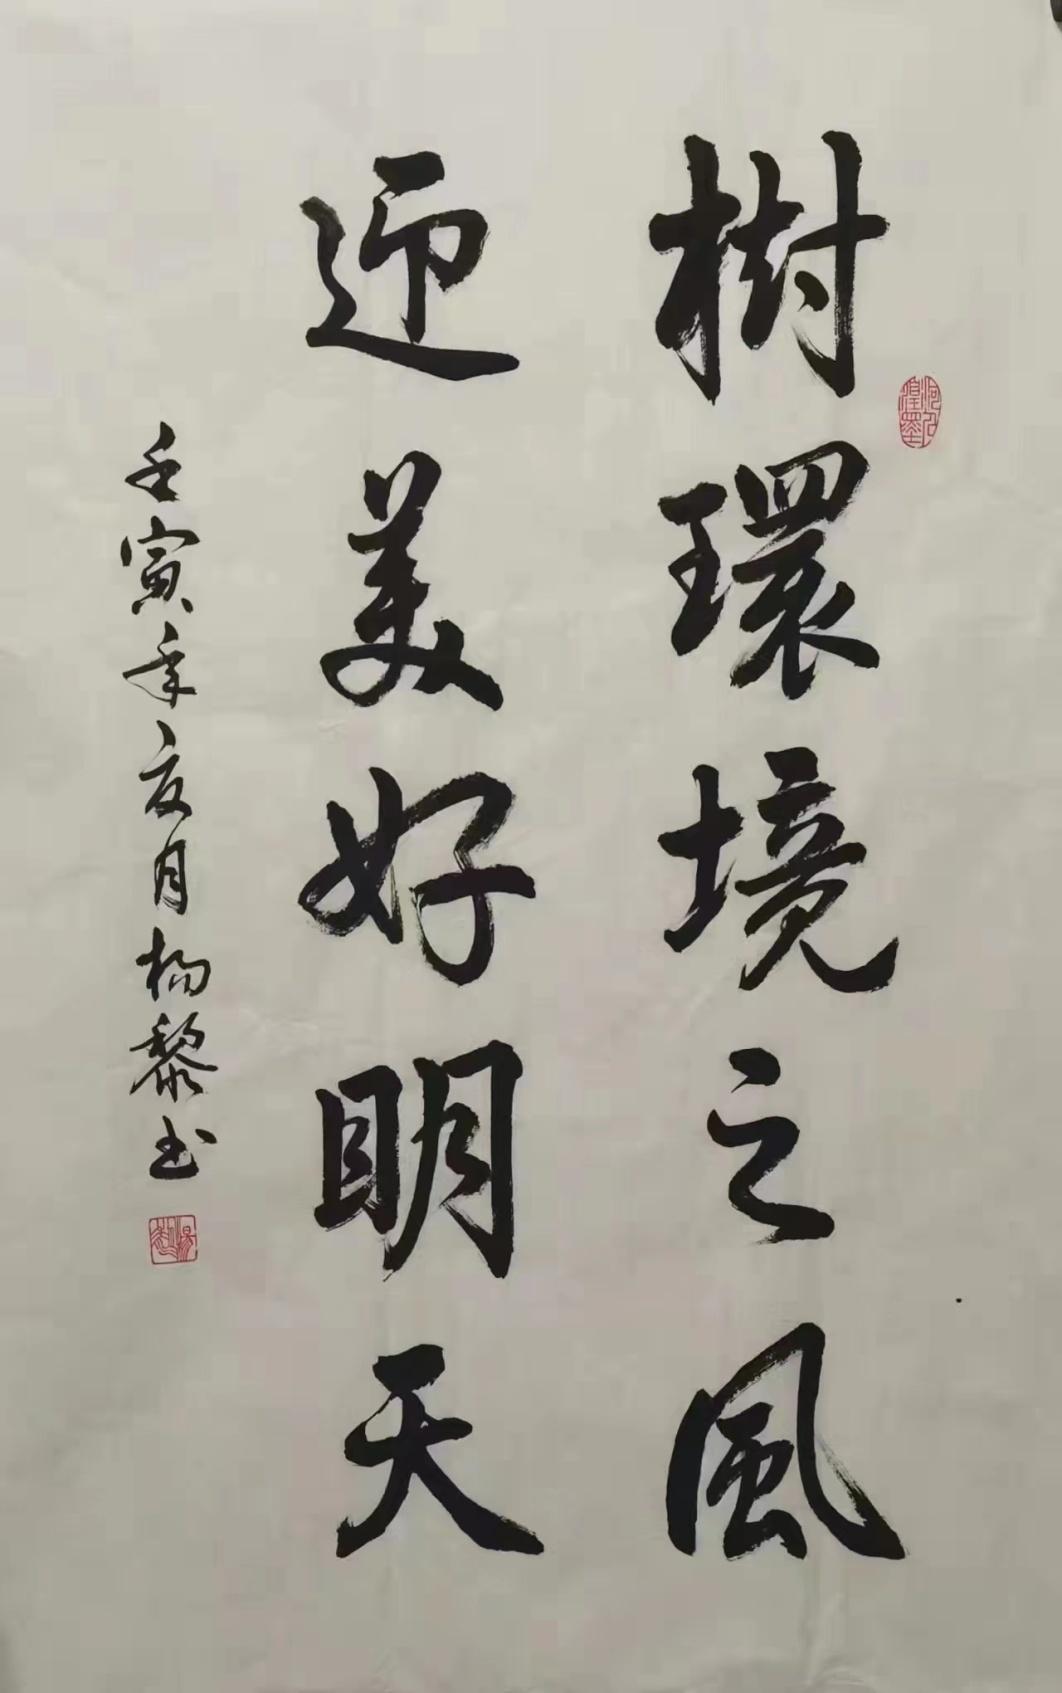 樹環境之風
迎美好明天
壬寅年亥月楊黎书